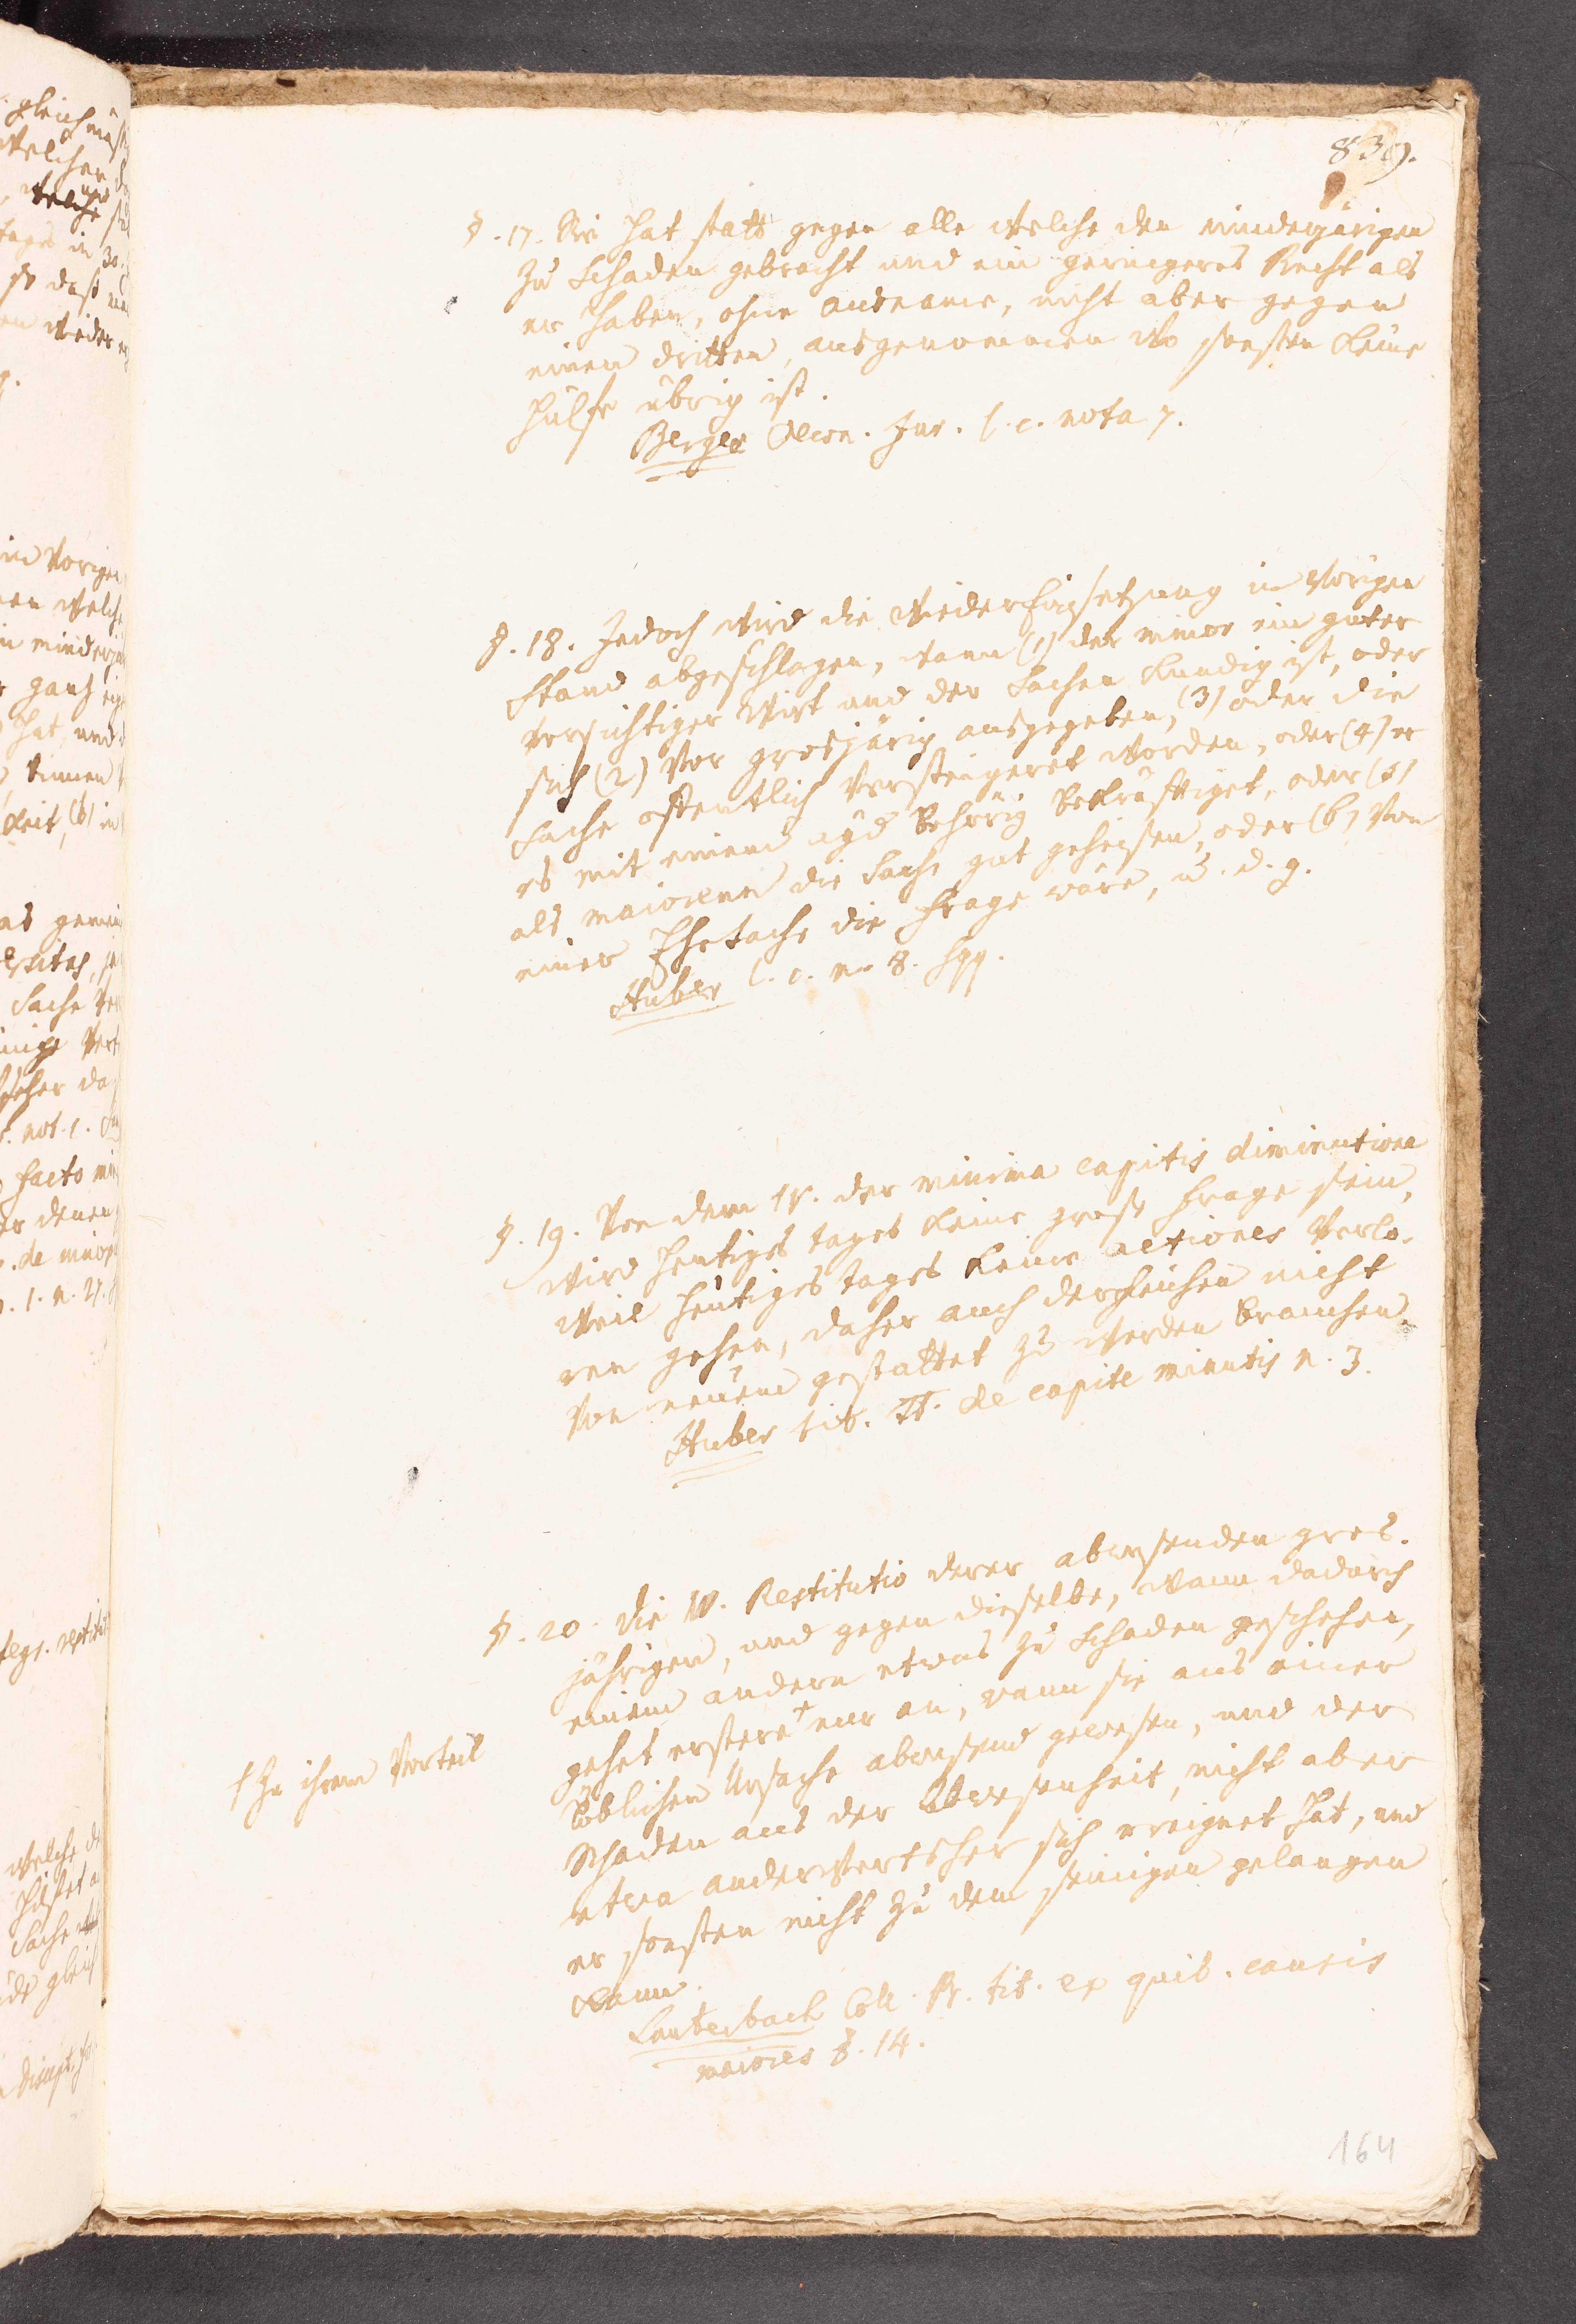 839.
§. 17. Sie hat statt gegen alle welche den minderjärigen
zu Schaden gebracht und ein geringeres Recht als
er haben, ohne ausname, nicht aber gegen
einen dritten, ausgenommen wo sonsten keine
Hülfe übrig ist.
Berger Oecon. Jur. l. c. nota 7.
§. 18. Jedoch wird die Wiedereinsetzung in vorigen
stand abgeschlagen, wann (1) der minor ein guter
vorsichtiger Wirt und der Sachen kundig ist, oder
sich (2) vor grosjärig ausgegeben, (3) oder die
Sache öffentlich versteigeret worden, oder (4) er
es mit einem ayd behörig bekräfftiget, oder (5)
als maiorenn die Sache gut geheisen, oder (6) von
einer Ehesache die Frage wäre, u. d. g.
Huber l. c. n. 8. sqq.
§. 19. Von dem IV. der minima capitis diminutione
wird heutiges tages keine grose Frage sein,
weil heutiges tages keine actiones verlo-
ren gehen, daher auch dergleichen nicht
von neuem gestattet zu werden brauchen.
Huber tit. π. de capite minutis n. 3.
§. 20. Die IV. Restitutio derer abwesenden gros-
jährigen, und gegen dieselbe, wann dadurch
einem andern etwas zu Schaden geschehen,
gehet erstere † nur an, wann sie aus einer
löblichen Ursache abwesend gewesen, und der
Schaden aus der Abwesenheit, nicht aber
etwa anderwertsher sich ereignet hat, und
er sonsten nicht zu dem seinigen gelangen
kann.
† zu ihrem Vorteil
Lauterbach Coll. Pr. tit. ex quib. causis
maiores §. 14.
164